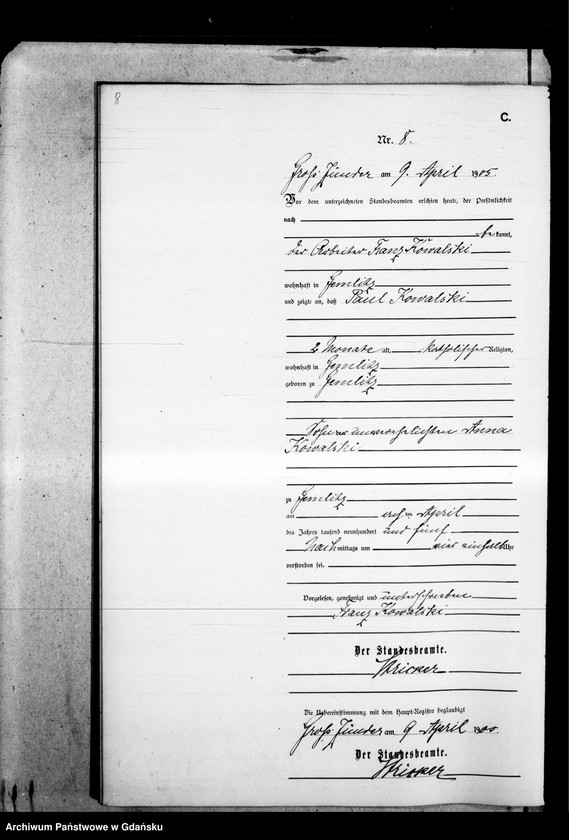 8
C.
Nr. 8.
Groß Zünder am 9. April 1905
Vor dem unterzeichneten Standesbeamten erschien heute, der Persönlichkeit
nach
be kannt,
der Arbeiter Franz Kowalski
wohnhaft in Gemlitz
und zeigte an, daß Paul Kowalski
2 Monate alt, katholischer Religion,
wohnhaft in Gemlitz
geboren zu Gemlitz
Sohn der unverehelichten Anna
Kowalski
zu Gemlitz
am ten April
des Jahres tausend neunhundert und fünf
Nach mittags um vier einhalb Uhr
verstorben sei.
Vorgelesen, genehmigt und unterschrieben
Franz Kowalski
Der Standesbeamte.
Die Uebereinstimmung mit dem Haupt-Register beglaubigt
Groß Zünder am 9 April 19
Der Standesbeamte.
Archiwum Państwowe w Gdańsku